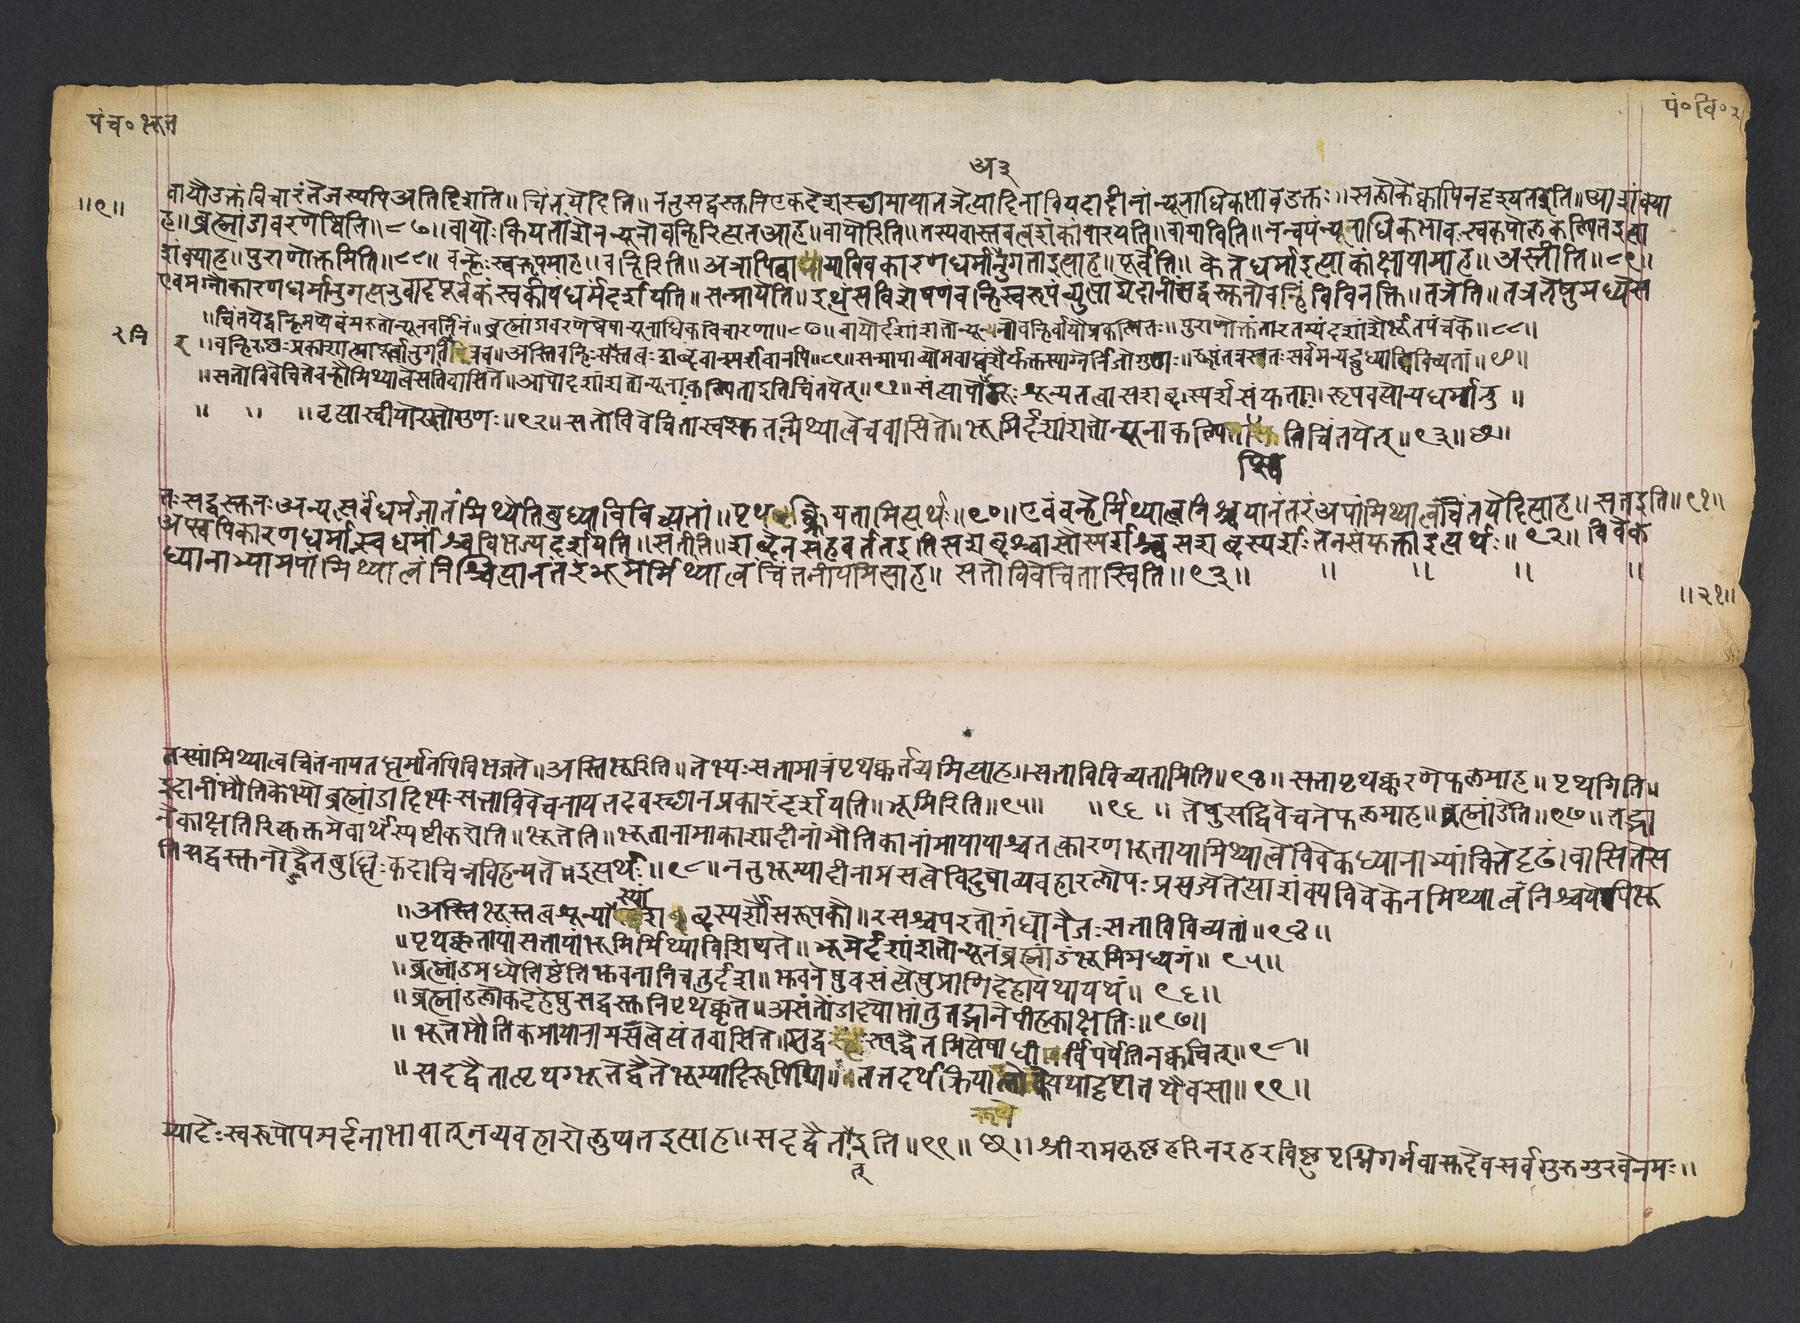 पंच० भूत
पं० वि० २
अ ३
वायौउक्तं विचारं तेजस्यपि अतिदिशति ॥ चिंतयेदिति ॥ ननु सद्वस्तुनि एकदेशस्था मायातत्रेत्यादिना वियदादीनां न्यूनाधिकभाव उक्तः ॥ सलोके क्वापि न दृश्यत इति
॥९॥
ह ॥ ब्रह्मांडावरणेष्विति ॥ ८७ ॥ वायोः कियतांशेन न्यूनो वन्हिरित्यत आह ॥ वायोरिति ॥ तस्य वास्तवत्वशंकां वारयति ॥
शंक्याह ॥ पुराणोक्तमिति ॥ ८८ ॥ वन्हेः स्वरूपमाह ॥ वन्हिरिति ॥ अत्रापि वायाविव कारणधर्मानुगता इत्याह ॥ पूर्वेति ॥ के ते धर्मा इत्याकांक्षायामाह ॥ अस्तीति ॥ ८९ ॥
एवमग्नौ कारणधर्मानुगत्यनुवादपूर्वकं स्वकीयधर्मं दर्शयति ॥ सन्मायेति ॥ इत्थं सविशेषणं वन्हिस्वरूपं व्युत्पाद्येदानीं सद्वस्तुनो वन्हिं विविनक्ति ॥ तत्रेति ॥ तत्र तेषु मध्ये स
॥ चिंतयेद्वन्हिमप्येवं मरुतो न्यूनवर्तिनं ॥ ब्रह्मांडावरणेष्वेषा न्यूनाधिकविचारणा ॥ ८७ ॥ वायोर्दशांशतो न्यूनो वन्हिर्वायौ प्रकल्पितः ॥ पुराणोक्तं तारतम्यं दशांशैर्भूतपंचके ॥ ८८ ॥
२ नि
॥ वन्हिरुष्णः प्रकाशात्मा पूर्वानुगतिरत्र च ॥ अस्ति वन्हिः स निस्तत्वः शब्दवान्स्पर्शवानपि ॥ ८९ ॥
॥ सतो विवेचिते वन्हौ मिथ्यात्वे सति वासिते ॥ आपो दशांशतो न्यूनाः कल्पिता इति चिंतयेत् ॥ ९१ ॥
॥ ॥ ॥ वृत्या स्वीयो रसो गुणः ॥ ९२ ॥ सतो विवेचितास्वप्सु तन्मिथ्यात्वे च वासिते ॥ भूमिर्दशांशतो न्यूना कल्पिता विचिंतयेत् ॥ ९३ ॥
तः सद्वस्तुनः अन्य सर्वं धर्मजातं मिथ्येति बुध्या विविच्यतां ॥ पृथक्क्रियतामित्यर्थः ॥ ९० ॥ एवं वन्हेर्मिथ्यात्वनिश्चयानंतरं अपां मिथ्यात्वं चिंतयेदित्याह ॥ सत इति ॥ ९१ ॥
अप्स्वपि कारणधर्मान् स्वधर्मांश्च विभज्य दर्शयति ॥ संतीति ॥ शब्देन सह वर्तत इति सशब्दश्चासौ स्पर्शश्च सशब्दस्पर्शः तेन संयुक्ता इत्यर्थः ॥ ९२ ॥ विवेक
ध्यानाभ्यामपां मिथ्यात्वं निश्चित्यानंतरं भूमेर्मिथ्यात्वं चिंतनीयमित्याह ॥ सतो विवेचितास्विति ॥ ९३ ॥ ॥ ॥ ॥ ॥
॥ २१ ॥
तस्यां मिथ्यात्वचिंतनाय तद्धर्मानपि विभजते ॥ अस्ति भूरिति ॥ तेभ्यः सत्तामात्रं पृथक्कर्तव्यमित्याह ॥ सत्ता विविच्यतामिति ॥ ९४ ॥ सत्तापृथक्करणे फलमाह ॥ पृथगिति ॥
इदानीं भौतिकेभ्यो ब्रह्मांडादिभ्यः सत्तां विवेचनाय तदवस्थानप्रकारं दर्शयति ॥ भूमिरिति ॥ ९५ ॥ ॥ ९६ ॥ तेषु सद्विवेचने फलमाह ॥ ब्रह्मांडेति ॥ ९७ ॥ तद्भा
ने का क्षतिरित्युक्तमेवार्थं स्पष्टीकरोति ॥ भूतेति ॥ भूतानामाकाशादीनां भौतिकानां मायायाश्च तत्कारणभूताया मिथ्यात्वे विवेकध्यानाभ्यां चित्ते दृढं वासिते स
ति सद्वस्तुनोद्वैतबुद्धिः कदाचिन्न विहन्यते इत्यर्थः ॥ ९८ ॥ ननु भूम्यादीनामसत्वे विदुषां व्यवहारलोपः प्रसज्येतेत्याशंक्य विवेकेन मिथ्यात्वनिश्चयेपि भू
॥ अस्ति भूस्तत्वशून्यास्यां शब्दस्पर्शौ सरूपकौ ॥ रसश्च परतो गंधो नैजः सत्ता विविच्यतां ॥ ९४ ॥
॥ पृथक्कृतायां सत्तायां भूमिर्मिथ्यावशिष्यते ॥ भूमेर्दशांशतो न्यूनं ब्रह्मांडं भूमिमध्यगं ॥ ९५ ॥
॥ ब्रह्मांडमध्ये तिष्ठंति भुवनानि चतुर्दश ॥ भुवनेषु वसंत्येषु प्राणिदेहा यथायथं ॥ ९६ ॥
॥ ब्रह्मांडलोकदेहेषु सद्वस्तुनि पृथक्कृते ॥ असंतोंडादयो भांतु तद्भानेपीह का क्षतिः ॥ ९७ ॥
॥ भूतभौतिकमायानामसत्वेत्यंतवासिते ॥ सद्वस्त्वद्वैतमित्येषा धीर्विपर्येति न क्वचित् ॥ ९८ ॥
॥ सदद्वैतात्पृथग्भूते द्वैते भूम्यादिरूपिणि ॥ तत्तदर्थक्रिया लोके यथा दृष्टा तथैव सा ॥ ९९ ॥
म्यादेः स्वरूपोपमर्दनाभावात् न व्यवहारो लुप्यत इत्याह ॥ सदद्वैतादिति ॥ ९९ ॥ श्रीरामकृष्णहरिनरहरविष्णुपृश्निगर्भवासुदेवसर्वगुरुगुरवे नमः ॥